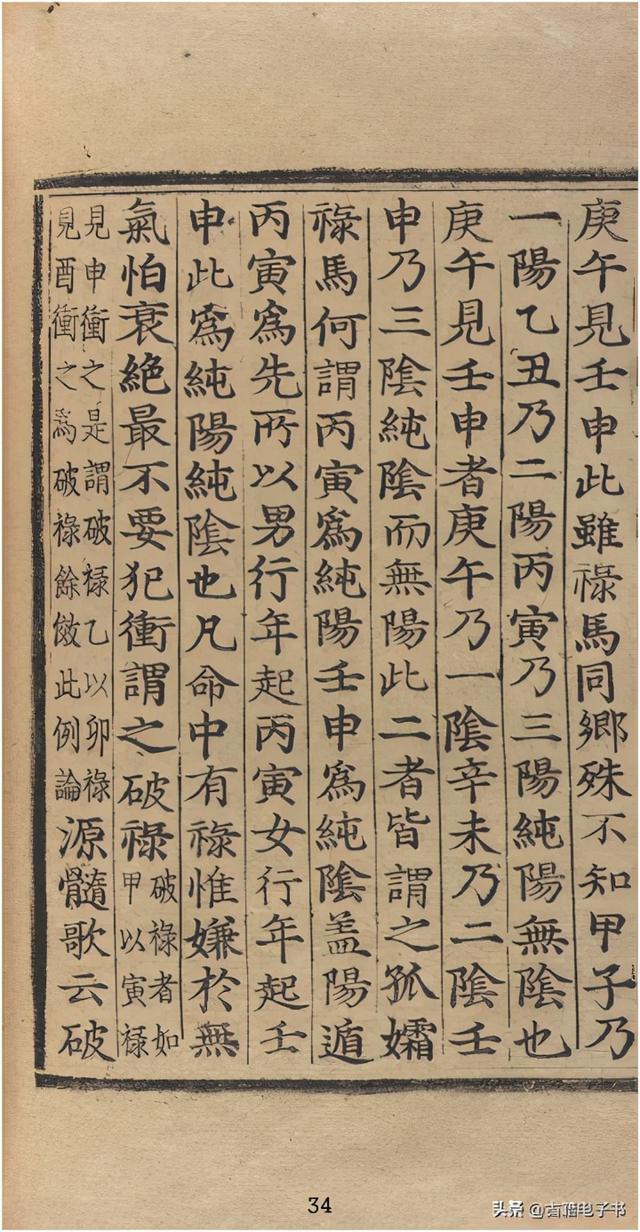 庚午見壬申此雖祿馬同鄉殊不知甲子乃
一陽乙丑乃二陽丙寅乃三陽純陽無陰也
庚午見壬申者庚午乃一陰辛未乃二陰壬
申乃三陰純陰而無陽此二者皆謂之孤孀
祿馬何謂丙寅爲純陽壬申爲純陰盖陽遁
丙寅爲先所以男行年起丙寅女行年起壬
申此爲純陽純陰也凡命中有祿惟嫌於無
氣怕衰絶最不要犯衝謂之破祿破祿者如甲以寅禄
見申衝之是謂破禄乙以卯禄見酉衝之爲破禄餘倣此例論源髓歌云破
34
头条 @古籍电子书